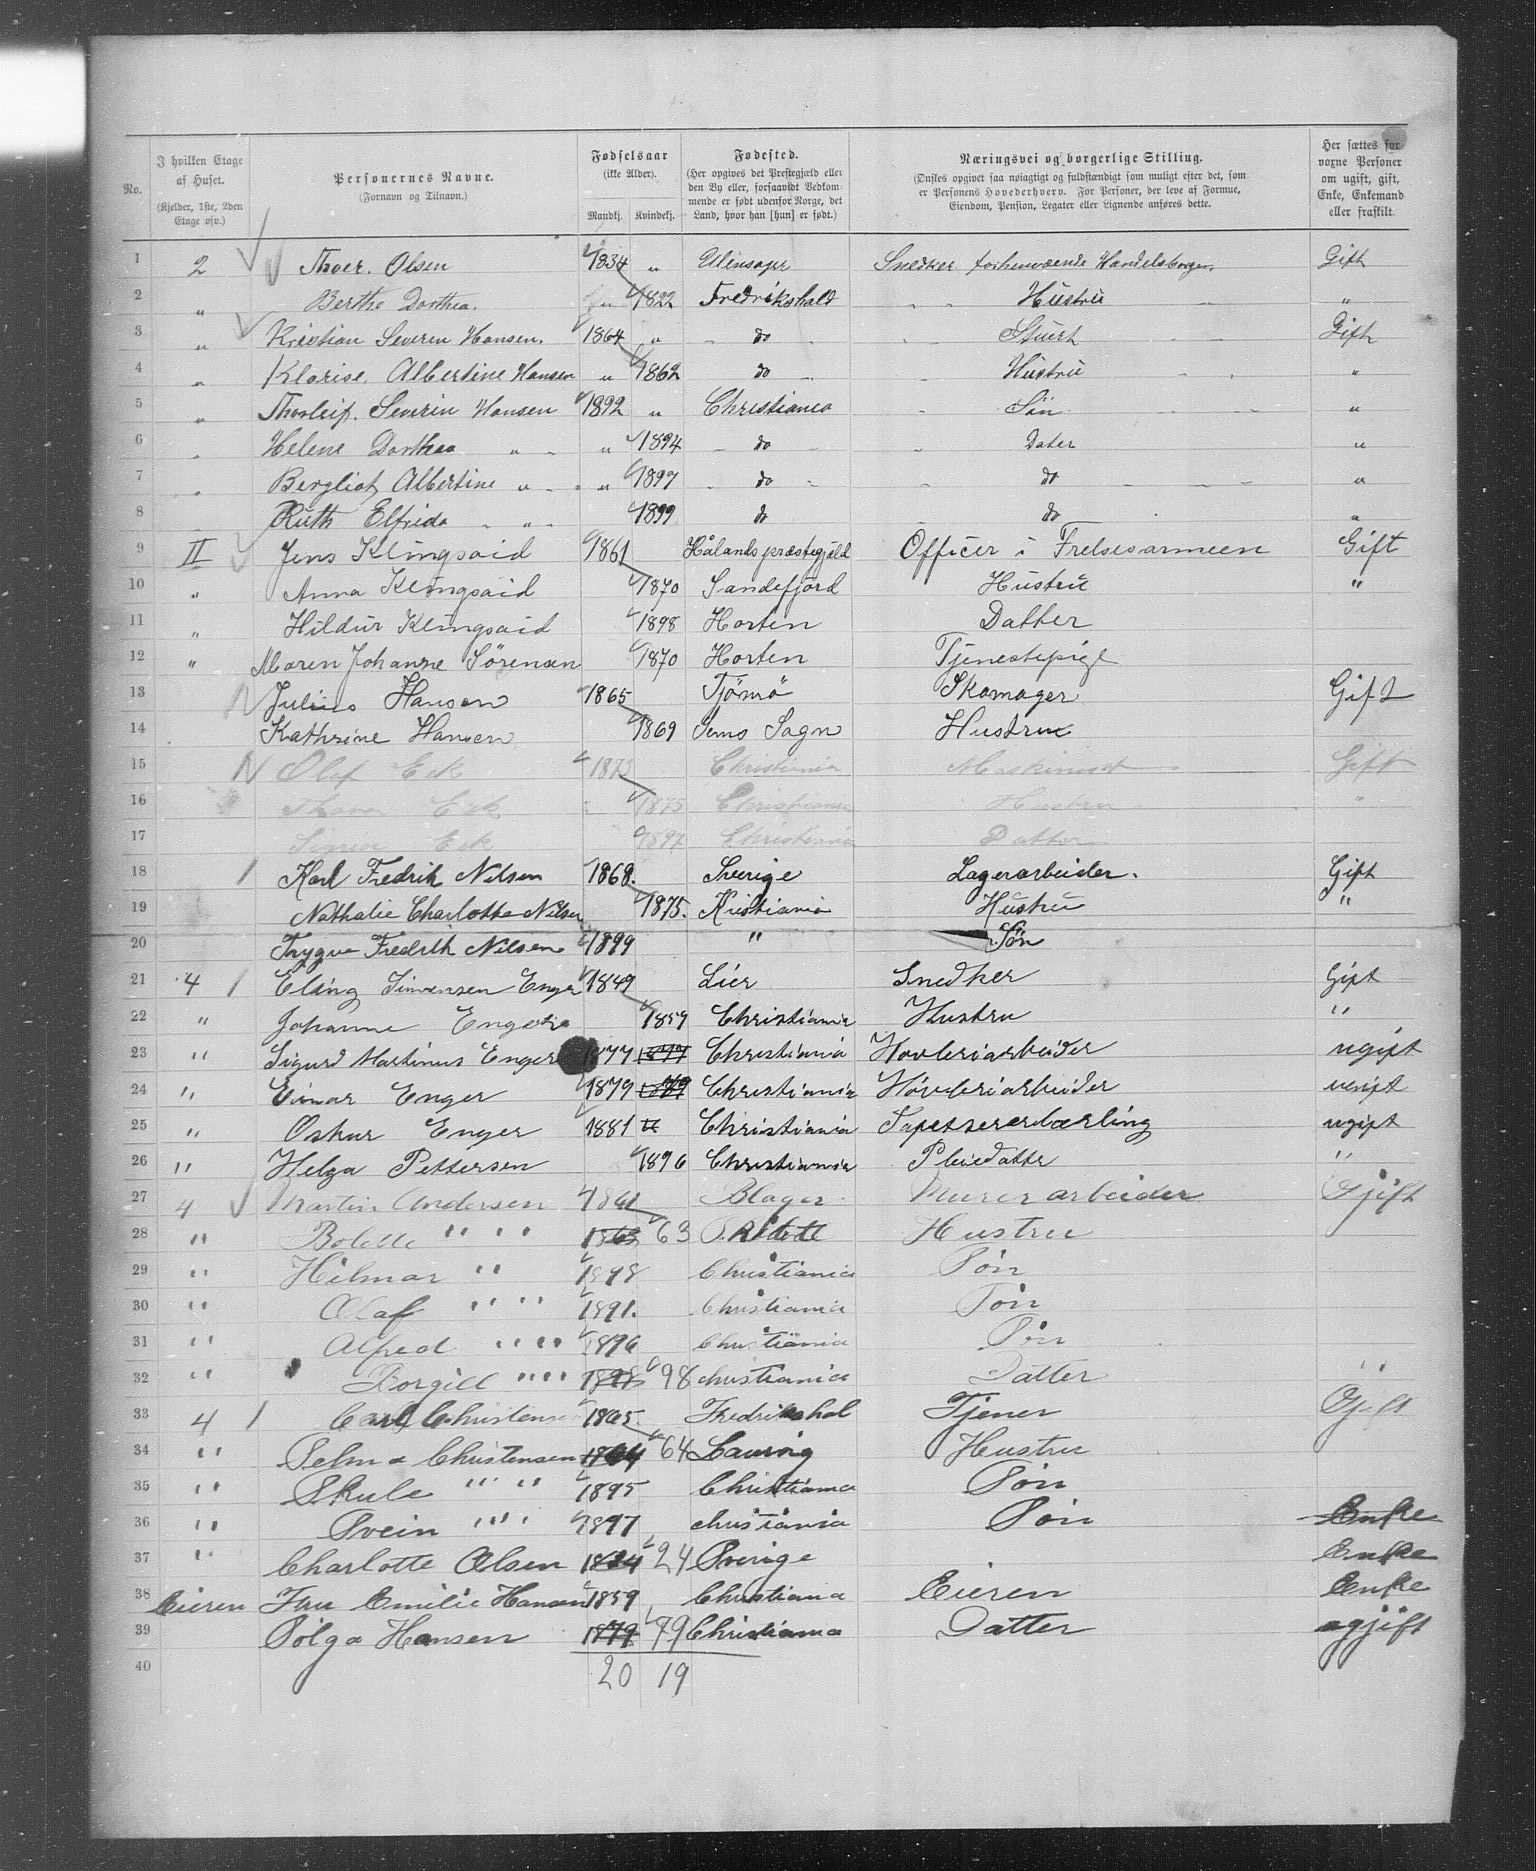 No.
I hvilken Etage af Huset. (Kjelder, 1ste, 2den Etage osv.)
Personernes Navne. (Fornavn og Tilnavn.)
Fødselsaar (ikke Alder). Mandkj. Kvindekj.
Fødested. (Her opgives det Prestegjæld eller den By eller, forsaavidt Vedkommende er født udenfor Norge, det Land, hvor han [hun] er født.)
Næringsvei og borgerlige Stilling. (Ønskes opgivet saa nøiagtigt og fuldstændigt som muligt efter det, som er Personens Hovederhverv. For Personer, der leve af Formue, Eiendom, Pension, Legater eller Lignende anføres dette.
Her sættes for voxne Personer om ugift, gift, Enke, Enkemand eller fraskilt.
1 2 Thoer. Olsen 1834 " Ulensager Snedker forhenværende Gift
2 " Berthe Dorthea. " 1822 Fredrikshald Hustru "
3 " Kristian Severin Hansen. 1864 " do Stuert Gift
4 " Klarise. Albertine Hansen " 1862 do Hustru "
5 " Thorleif. Severin Hansen 1892 " Christiania Sön "
6 " Helene Dorthea " " 1894 do Dater "
7 " Bergliot Albertine " " 1897 do do "
8 Ruth Elfrida " 1899 do do "
9 II Jens Klungsoid 1861 Hålands præstegjæld Officer i Frelsesarmeen Gift
10 " Anna Klungsoid 1870 Sandefjord Hustru "
11 " Hildur Klungsoid 1898 Horten Datter
12 " Maren Johanne Sörensen 1870 Horten Tjenestepige
13 Julius Hansen 1865 Tjömö Skomager Gift
14 Kathrine Hansen 1869 Sems Sogn Hustru
15 Olaf Eck 1873 Christiania Maskinist Gift
16 Eck 1875 Christiania Hustru "
17 Eck 1897 Christiania Datter
18 Karl Fredrik Nilsen 1868. Sverige Lagerarbeider. Gift
19 Nathalie Charlotte Nilsen 1875. Kristiania Hustru "
20 Trygve Fredrik Nilsen 1899 " Sön
21 4 Eling Simensen Enger 1849 Lier Snedker Gift
22 " Johanne Enger 1859 Christiania Hustru "
23 " Sigurd Martinus Enger 1877 1877 Christiania Hövleriarbeider ugift
24 " Einar Enger 1879 1879 Christiania Hövleriarbeider ugift
25 " Oskar Enger 1881 Christiania Tapetsererlærling ugift
26 " Helga Pettersen 1896 Christiania Pleiedatter "
27 4 Martin Andersen 1861 Blager Murerarbeider Gjift
28 " Bolette " " 1863 63 Hustru
29 " Hilmar " 1898 Christiania Sön
30 " Olaf " " 1891. Christiania Sön
31 " Alfred " " 1896 Christiania Sön
32 " Borgill " " 1898 98 christiania Datter "
33 4 Carl Christensen 1865. Fredrikshal Tjener Gjift
34 " Selma Christensen 1864 64 Laurvig Hustru
35 " Skule " " 1895 Christiania Sön
36 " Svein " " 1897 christiania Sön Enke
37 " Charlotte Olsen 1824 24 Sverige Enke
38 Eieren Fru Emilie Hansen 1859 Christiana Eieren Enke
39 Solga Hansen 1879 79 Christiania Datter ugjift
40 20 19